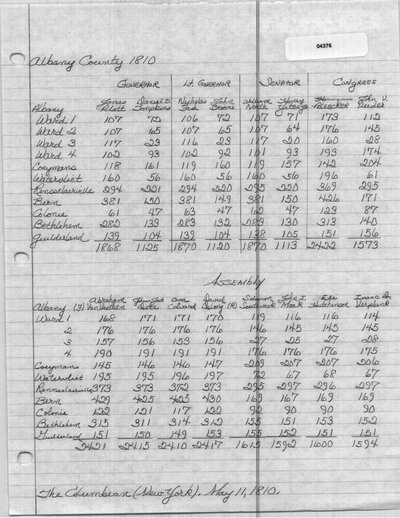 04376
Albany County 1810
GOVERNOR LT. GOVERNOR SENATOR CONGRESS
Jonas Daniel D. Nicholas John William Henry Hermanus John V.
Albany Platt Tompkins Fish Broome North
Ward 1 107 72 106 72 107 71 173 112
Ward 2 107 65 107 65 107 64 176 145
Ward 3 117 23 116 23 117 20 160 28
Ward 4 102 93 102 92 101 93 193 174
Coeymans 118 161 119 160 119 157 142 204
Watervliet 160 56 160 56 160 56 196 61
Rensselaerville 294 221 294 220 295 220 369 295
Bern 381 150 381 149 381 150 426 171
Colonie 61 47 63 47 62 47 123 87
Bethlehem 282 133 283 132 283 130 313 140
Guilderland 139 104 139 104 138 105 151 156
1868 1125 1870 1120 1870 1113 2422 1573
ASSEMBLY
Abraham Asa David Solomon John I. Isaac
Albany (F) (R) Southwick Hutchinson Verplanck
Ward 1 168 171 171 170 119 116 116 114
2 176 176 176 176 146 145 145 145
3 157 156 153 156 27 25 27 28
4 190 191 191 191 176 176 176 175
Coeymans 145 146 146 147 209 207 207 206
Watervliet 195 195 196 197 72 67 68 67
Rensselaerville 373 373 372 373 295 297 296 297
Bern 429 425 425 430 169 167 169 169
Colonie 122 121 117 122 92 90 90 90
Bethlehem 315 311 314 312 155 151 153 152
Guilderland 151 150 149 153 155 152 151 151
2421 2415 2410 2417 1615 1592 1600 1594
The Columbian (New York). May 11, 1810.